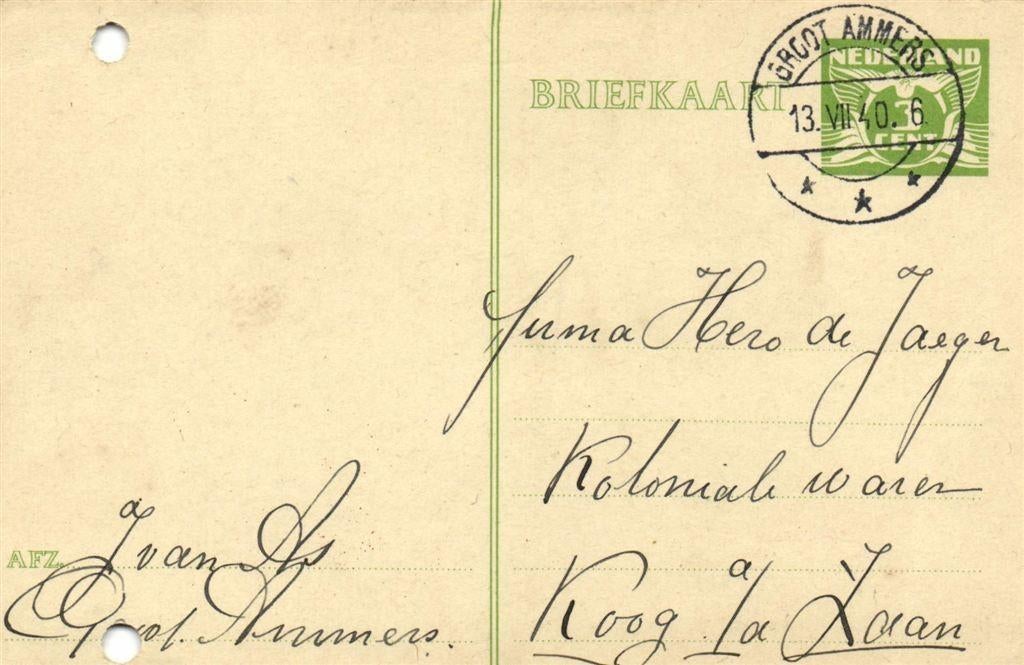 BRIEFKAART
GROOT AMMERS
13. VII 40. 6
NEDERLAND
3
CENT
Firma Hero de Jaeger
Koloniale waren
Koog a/d Zaan
AFZ. J van As
Groot Ammers.